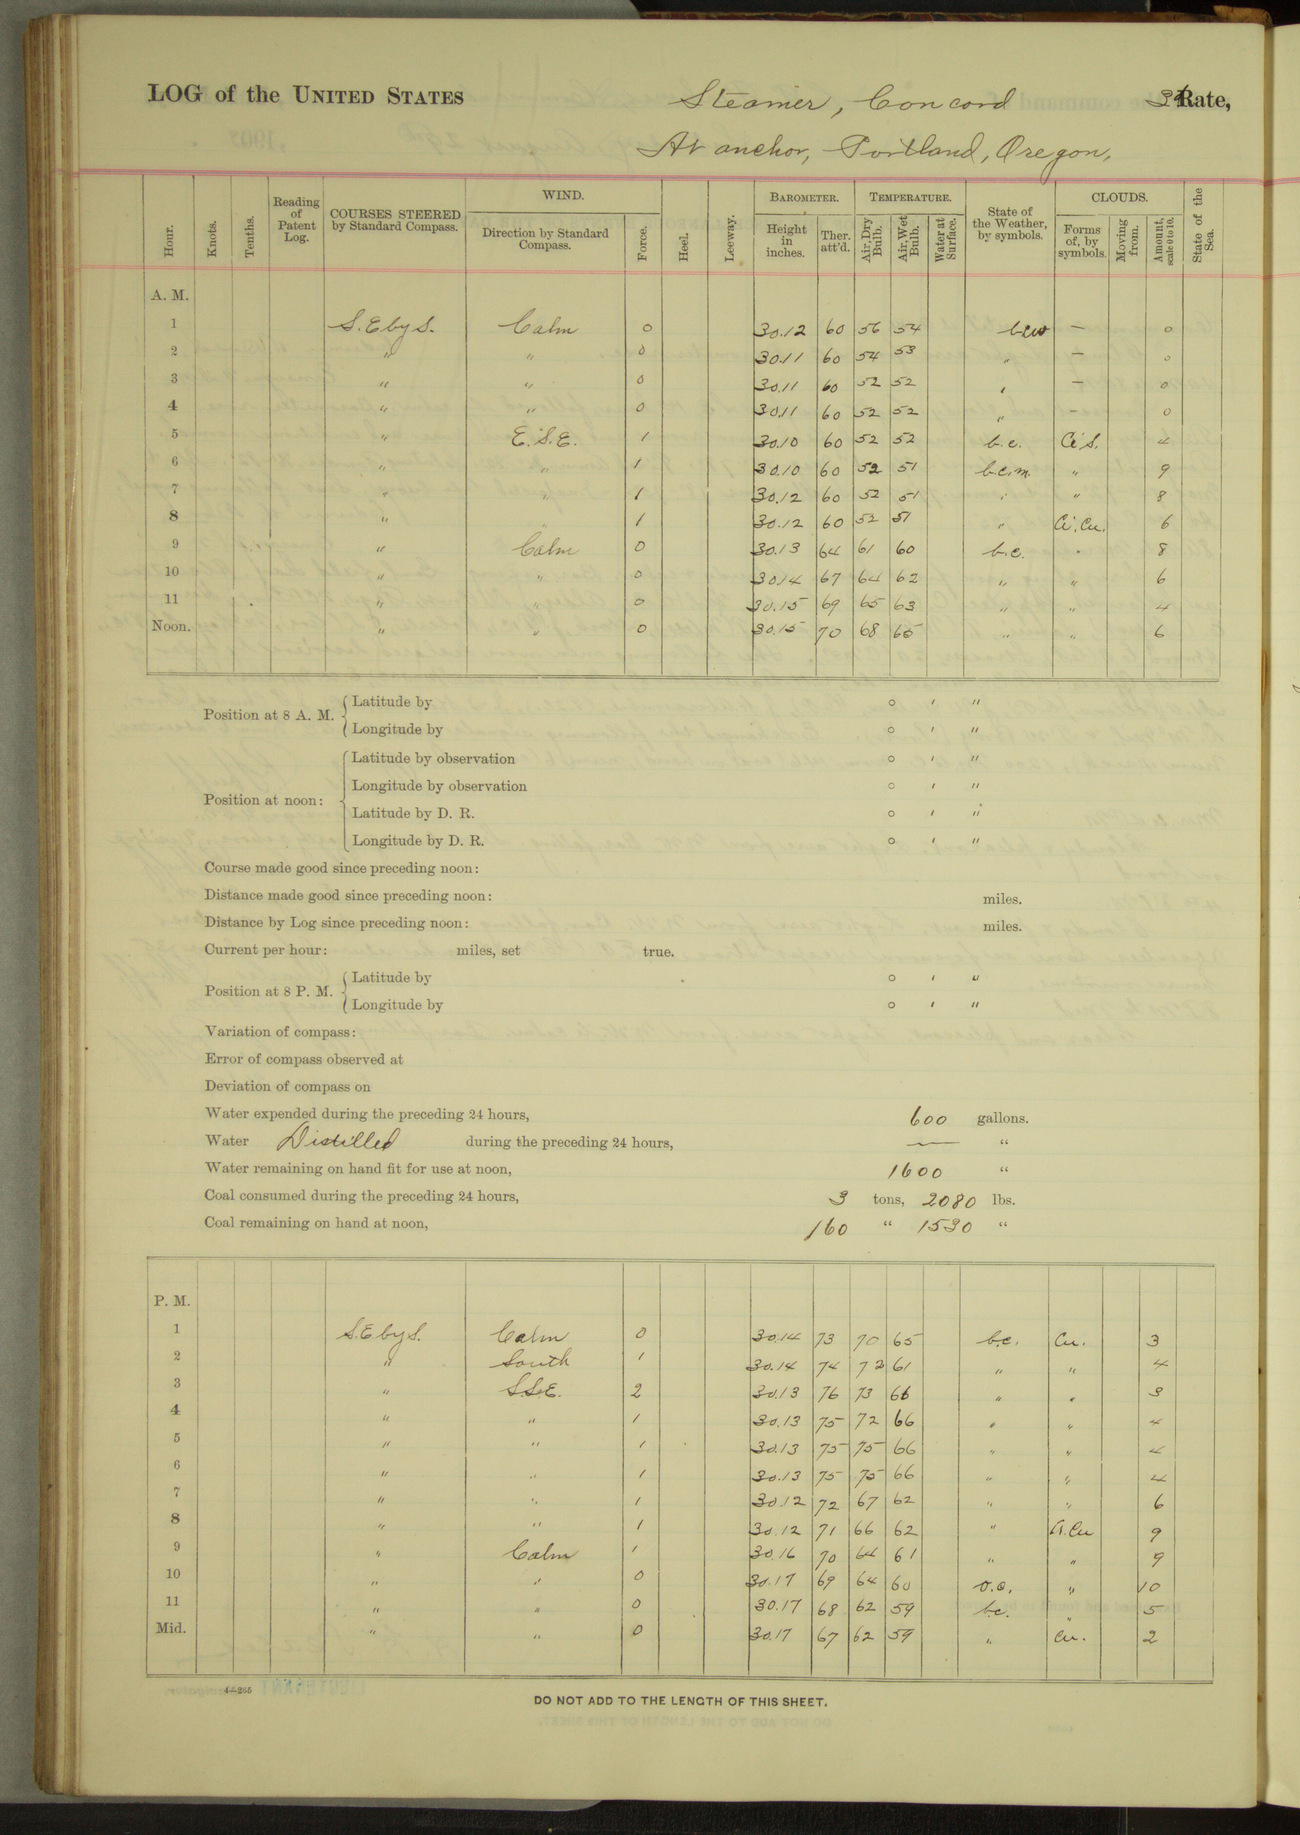 LOG of the UNITED STATES Steamer, Concord 3d Rate,
At anchor, Portland, Oregon,
Hour. Knots. Tenths. Reading of Patent Log. COURSES STEERED by Standard Compass. WIND. Direction by Standard Compass. Force. Heel. Leeway. BAROMETER. Height in inches. Ther. att'd. TEMPERATURE. Air, Dry Bulb. Air, Wet Bulb. Water at Surface. State of the Weather, by symbols. CLOUDS. Forms of, by symbols. Moving from. Amount, scale 0 to 10. State of the Sea.
A. M.
1 S.E by S. Calm 0 30.12 60 56 54 bcw — 0
2 " " 0 30.11 60 54 53 " — 0
3 " " 0 30.11 60 52 52 " — 0
4 " " 0 30.11 60 52 52 " — 0
5 " E.S.E. 1 30.10 60 52 52 b.c. Ci.S. 4
6 " " 1 30.10 60 52 51 b.c.m. " 9
7 " " 1 30.12 60 52 51 " " 8
8 " " 1 30.12 60 52 51 " Ci.Cu. 6
9 " Calm 0 30.13 64 61 60 b.c. " 8
10 " " 0 30.14 67 64 62 " " 6
11 " " 0 30.15 69 65 63 " " 4
Noon. " " 0 30.15 70 68 65 " " 6
Position at 8 A. M. { Latitude by ° ' "
Longitude by ° ' "
Position at noon: { Latitude by observation ° ' "
Longitude by observation ° ' "
Latitude by D. R. ° ' "
Longitude by D. R. ° ' "
Course made good since preceding noon:
Distance made good since preceding noon: miles.
Distance by Log since preceding noon: miles.
Current per hour: miles, set true.
Position at 8 P. M. { Latitude by ° ' "
Longitude by ° ' "
Variation of compass:
Error of compass observed at
Deviation of compass on
Water expended during the preceding 24 hours, 600 gallons.
Water Distilled during the preceding 24 hours, — "
Water remaining on hand fit for use at noon, 1600 "
Coal consumed during the preceding 24 hours, 3 tons, 2080 lbs.
Coal remaining on hand at noon, 160 " 1530 "
P. M.
1 S.E by S. Calm 0 30.14 73 70 65 b.c. Cu. 3
2 " South 1 30.14 74 72 61 " " 4
3 " S.S.E. 2 30.13 76 73 66 " " 3
4 " " 1 30.13 75 72 66 " " 4
5 " " 1 30.13 75 75 66 " " 4
6 " " 1 30.13 75 75 66 " " 4
7 " " 1 30.12 72 67 62 " " 6
8 " " 1 30.12 71 66 62 " A.Cu 9
9 " Calm 1 30.16 70 64 61 " " 9
10 " " 0 30.17 69 64 60 o.c. " 10
11 " " 0 30.17 68 62 59 b.c. " 5
Mid. " " 0 30.17 67 62 59 " Cu. 2
4—265
DO NOT ADD TO THE LENGTH OF THIS SHEET.